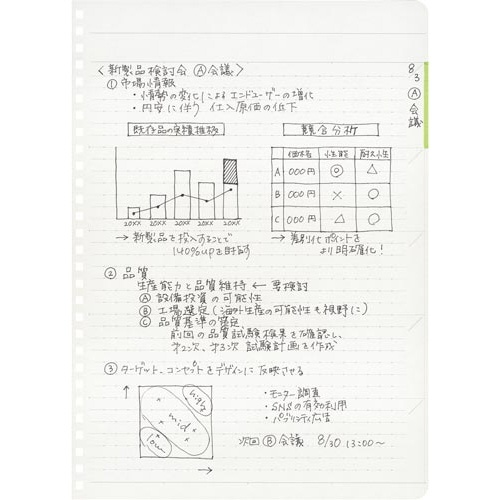 〈新製品検討会 Ⓐ会議〉
8/3 Ⓐ会議
① 市場情報
・情勢の変化によるエンドユーザーの増化
・円安に伴う 仕入原価の低下
既存品の実績推移
20XX 20XX 20XX 20XX 20XX
→ 新製品を投入することで
140%upを目指す
競合分析
価格 性能 耐久性
A 000円 ◎ △
B 000円 × ○
C 000円 △ ○
→ 差別化ポイントを
より明確化!
② 品質
生産能力と品質維持 ← 要検討
Ⓐ 設備投資の可能性
Ⓑ 工場選定(海外生産の可能性も視野に)
Ⓒ 品質基準の策定
前回の品質試験結果を確認し、
第2次、第3次 試験計画を作成
③ ターゲット、コンセプトをデザインに反映させる
high
mid
low
・モニター調査
・SNSの有効利用
・パブリシティ広告
次回 Ⓑ会議 8/30 13:00〜